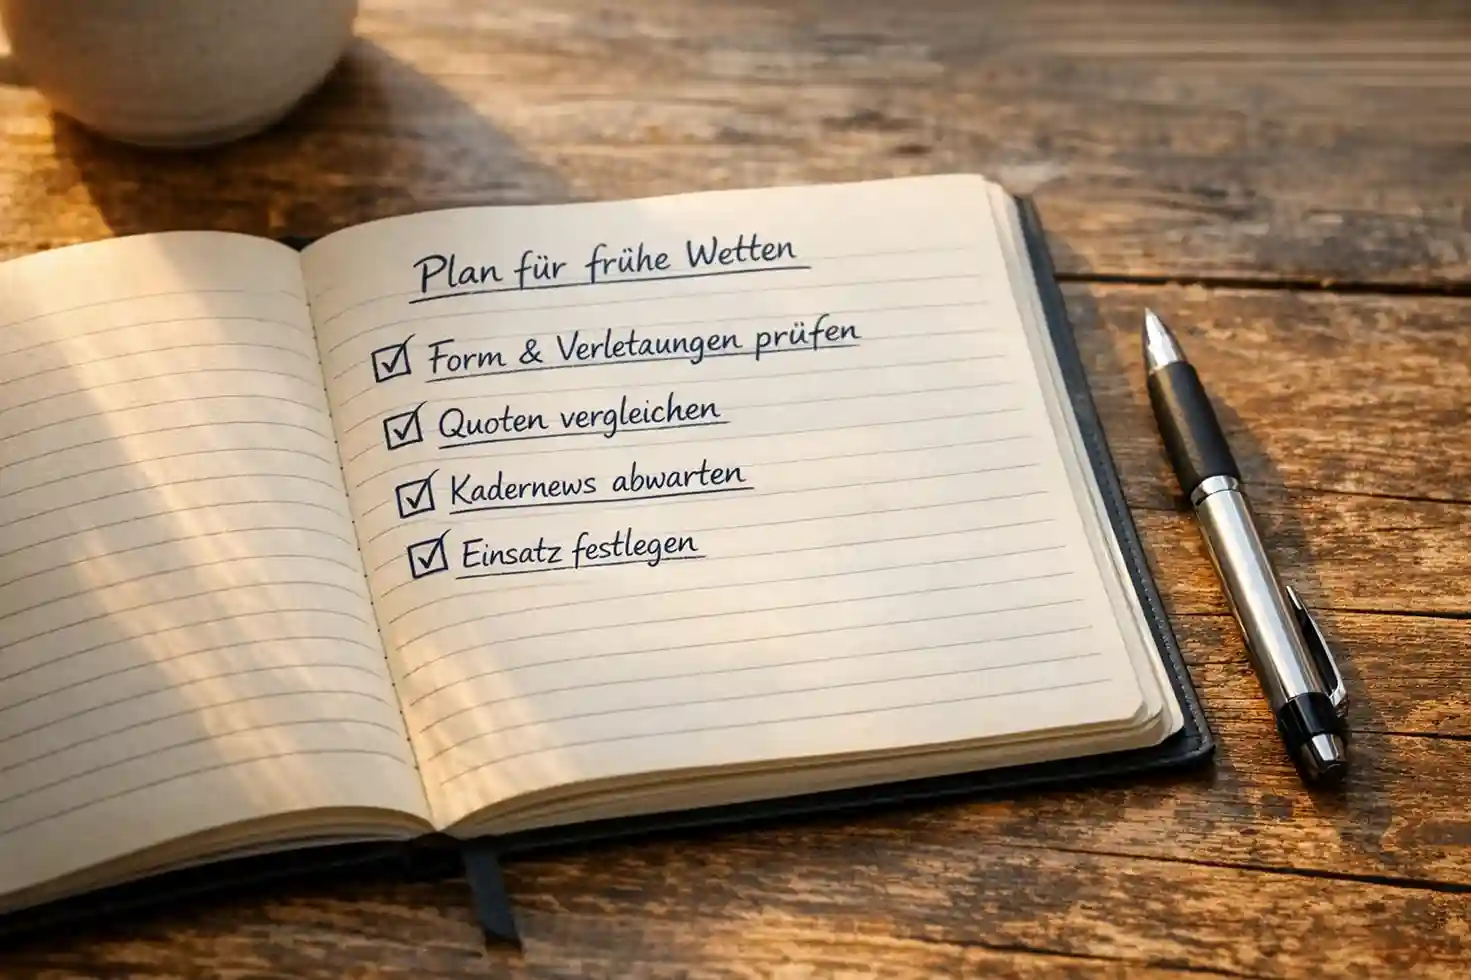 Plan für frühe Wetten
Form & Verletaungen prüfen
Quoten vergleichen
Kadernews abwarten
Einsatz festlegen